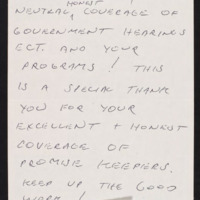 HONEST !
NEUTRAL ^ COVERAGE OF
GOVERNMENT HEARINGS
ECT. AND YOUR
PROGRAMS! THIS
IS A SPECIAL THANK
YOU FOR YOUR
EXCELLENT + HONEST
COVERAGE OF
PROMISE KEEPERS.
KEEP UP THE GOOD
WORK!